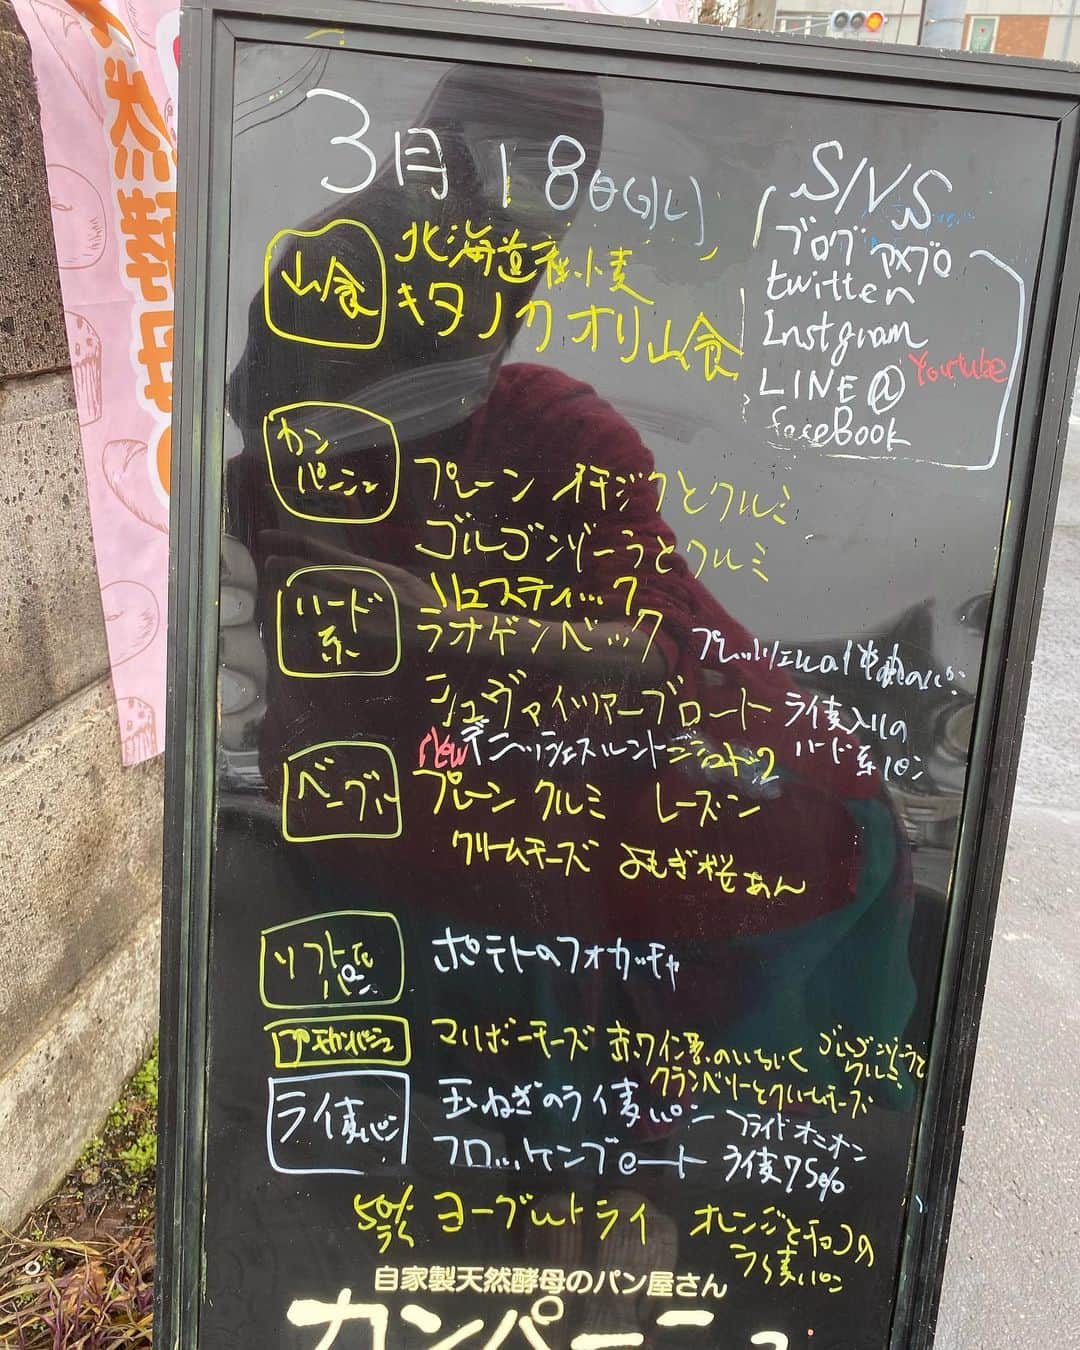 3月18日(火)
山食
北海道産小麦
キタノカオリ山食
SNS
ブログ アメブロ
twitter
Instgram
LINE@
Youtube
faceBook
カン
パーニュ
プレーン イチジクとクルミ
ゴルゴンゾーラとクルミ
ハード
系
リュスティック
ラオゲンベック
シュヴァイツァーブロート
ライ麦入りの
ハード系パン
New
ベーグル
プレーン クルミ レーズン
クリームチーズ よもぎ桜あん
ソフトな
パン
ポテトのフォカッチャ
プチカンパーニュ
マルボーチーズ 赤ワイン漬のいちじく
ゴルゴンゾーラと
クルミ
クランベリーとクリームチーズ
ライ麦パン
玉ねぎのライ麦パン フライドオニオン
フロッケンブロート ライ麦75%
50%
ライ
ヨーグルトライ
オレンジとチョコの
ライ麦パン
自家製天然酵母のパン屋さん
カンパーニュ